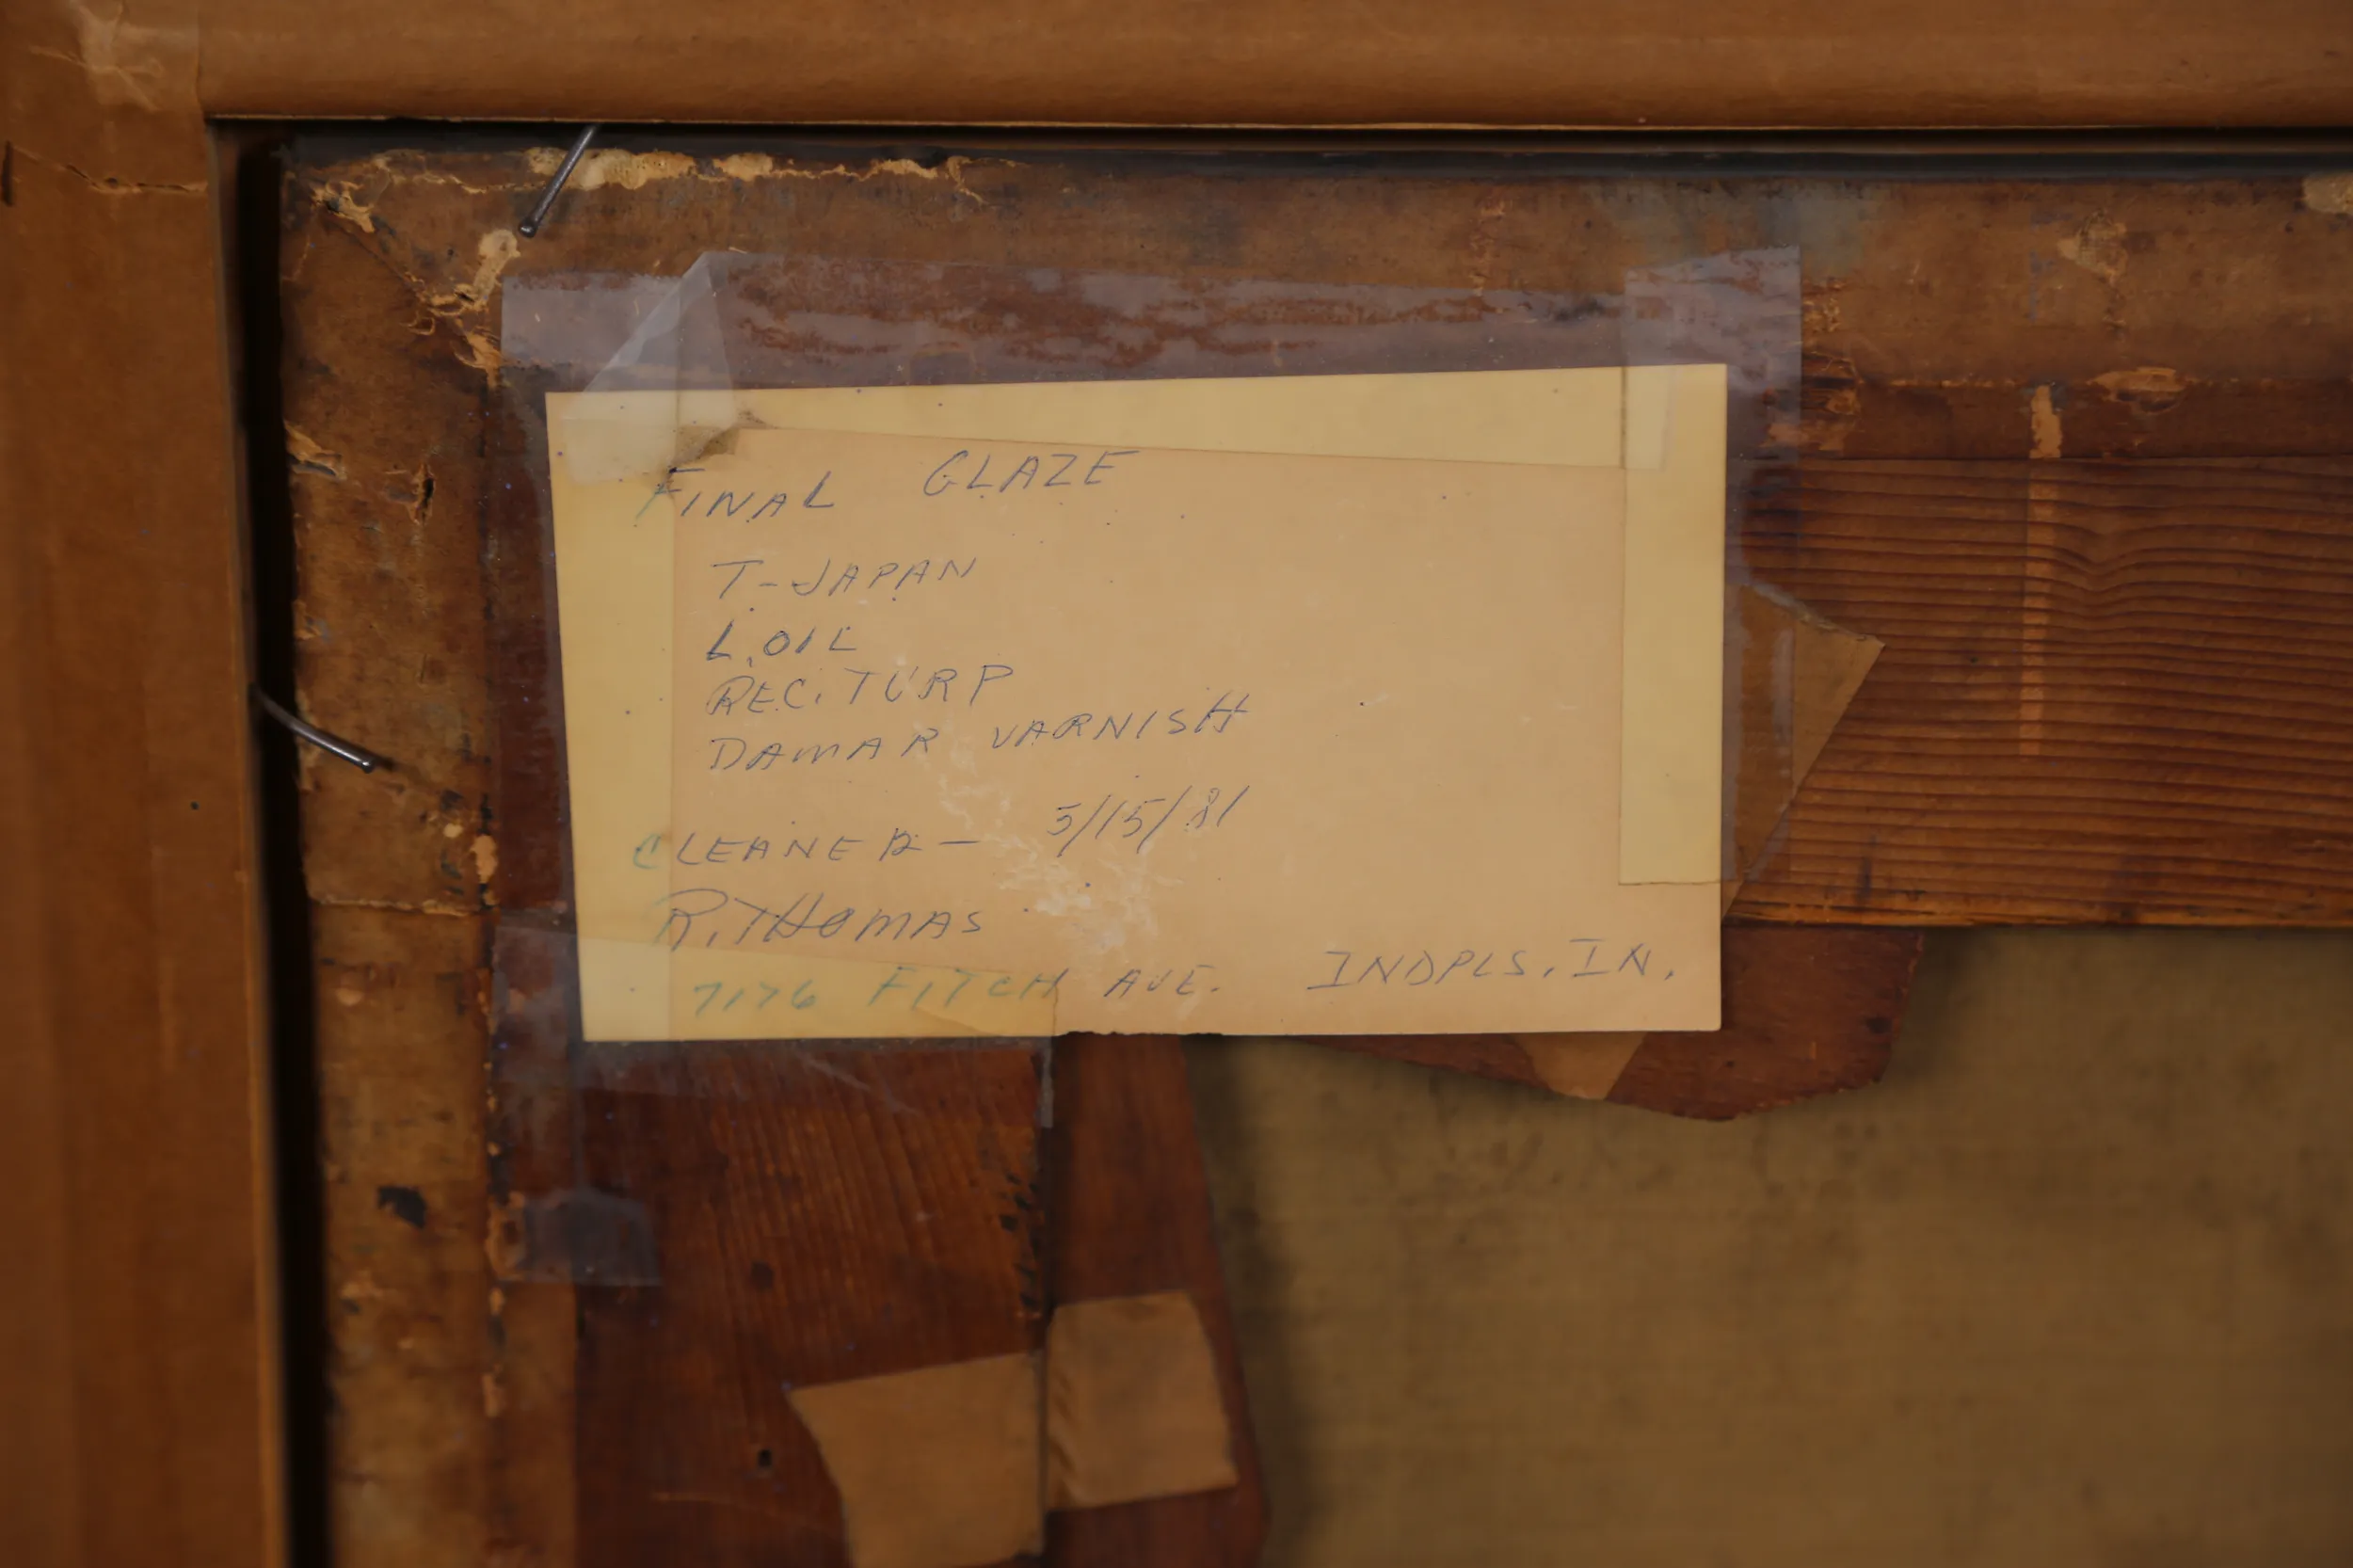 FINAL GLAZE
T-JAPAN
L.OIL
REC. TURP
DAMAR VARNISH
CLEANER — 5/15/81
R. THOMAS
7176 FITCH AVE. INDPLS, IN.